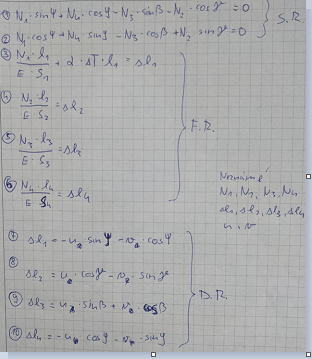 ① N₁·sinφ + N₄·cosφ - N₃·sinβ - N₂·cosγ = 0
② N₁·cosφ + N₄ sinφ - N₃·cosβ + N₂ sinγ = 0
} S.R.
③ N₁·l₁ / E·S₁ + α·ΔT·l₁ = Δl₁
④ N₂ l₂ / E·S₂ = Δl₂
⑤ N₃·l₃ / E·S₃ = Δl₃
⑥ N₄·l₄ / E S₄ = Δl₄
} F.R.
Neznámé
N₁, N₂, N₃, N₄
Δl₁, Δl₂, Δl₃, Δl₄
u, v
⑦ Δl₁ = -u sinφ - v·cosφ
⑧ Δl₂ = u·cosγ - v·sinγ
⑨ Δl₃ = u·sinβ + v·cosβ
⑩ Δl₄ = -u cosφ - v·sinφ
} D.R.